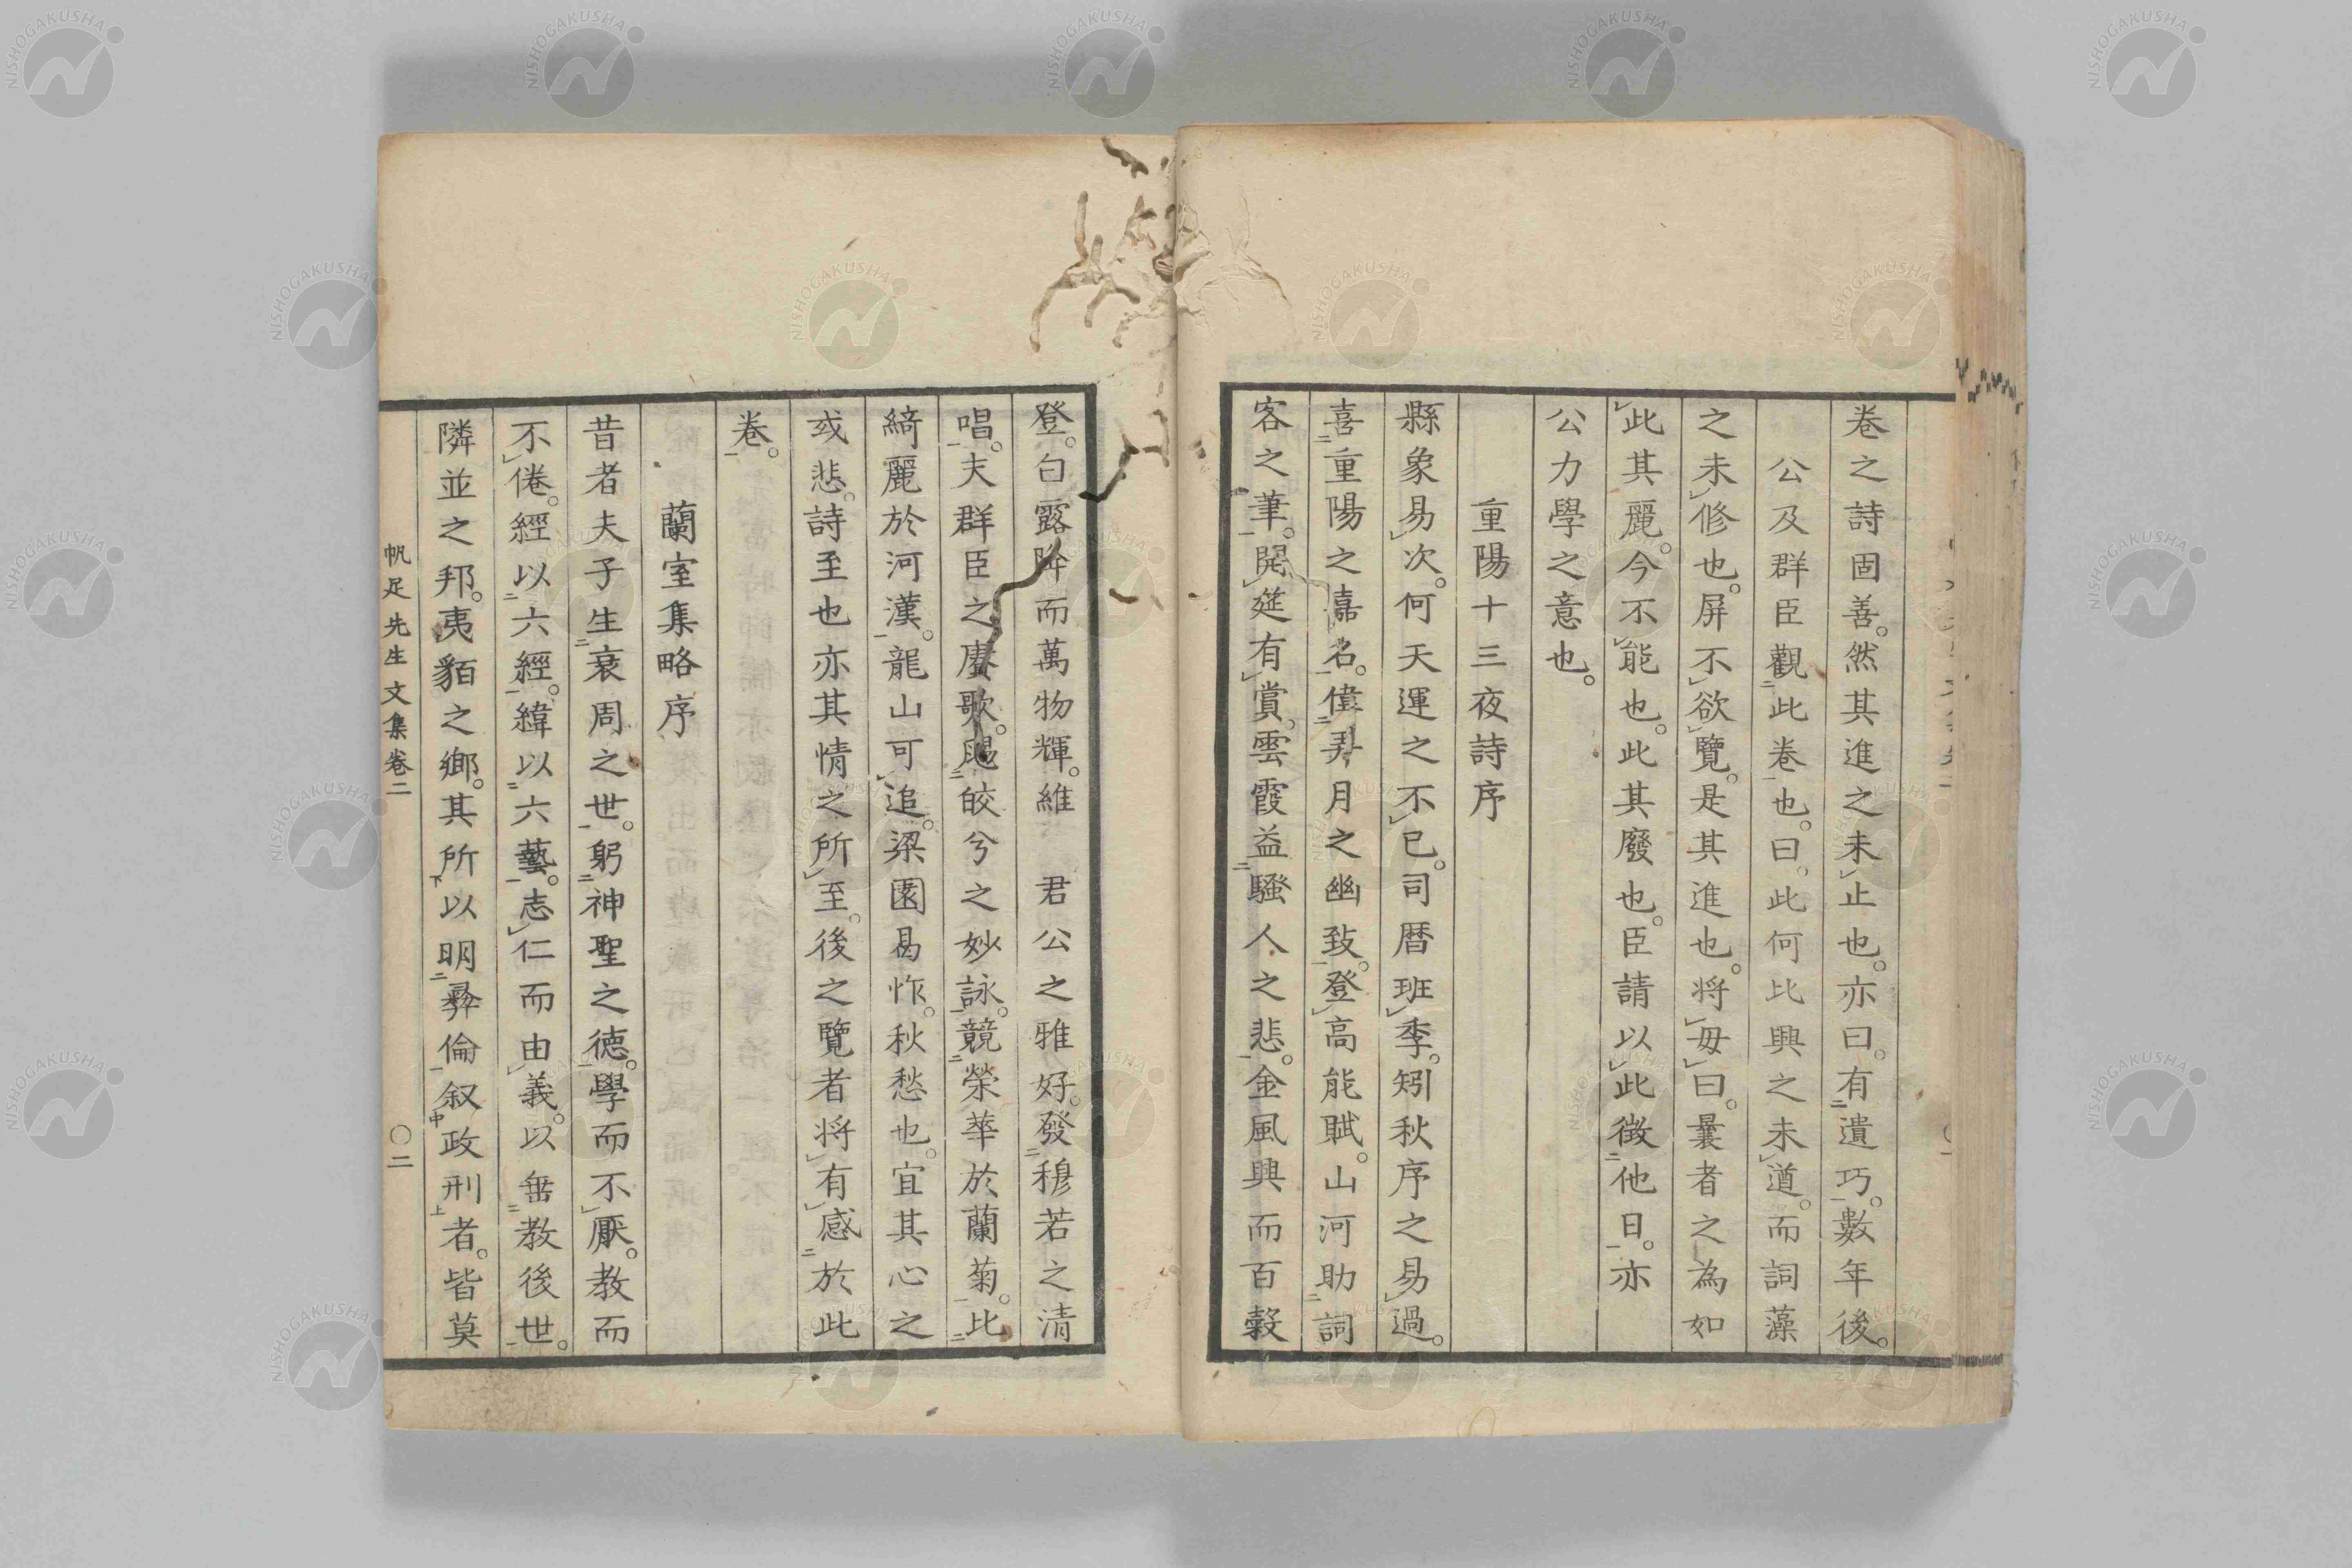 卷之詩固善。然其進之未止也。亦曰。有遺巧。數年後。
公及群臣觀此卷也。曰。此何比興之未道。而詞藻
之未修也。屏不欲覽。是其進也。将毋曰。曩者之為如
此其麗。今不能也。此其廢也。臣請以此徴他日。亦
公力學之意也。
重陽十三夜詩序
縣象易次。何天運之不已。司暦班季。矧秋序之易過。
喜重陽之嘉名。偉弄月之幽致。登高能賦。山河助詞
客之筆。開筵有賞。雲霞益騷人之悲。金風興而百穀
登。白露降而萬物輝。維 君公之雅好。發穆若之清
唱。夫群臣之賡歌。颺皎兮之妙詠。競榮華於蘭菊。比
綺麗於河漢。龍山可追。梁園曷怍。秋愁也。宜其心之
或悲。詩至也亦其情之所至。後之覽者将有感於此
卷。
蘭室集略序
昔者夫子生衰周之世。躬神聖之德。學而不厭。教而
不倦。經以六經。緯以六藝。志仁而由義。以垂教後世。
隣並之邦。夷貊之鄉。其所以明彝倫叙政刑者。皆莫
帆足先生文集卷二
〇二
NISHOGAKUSHA